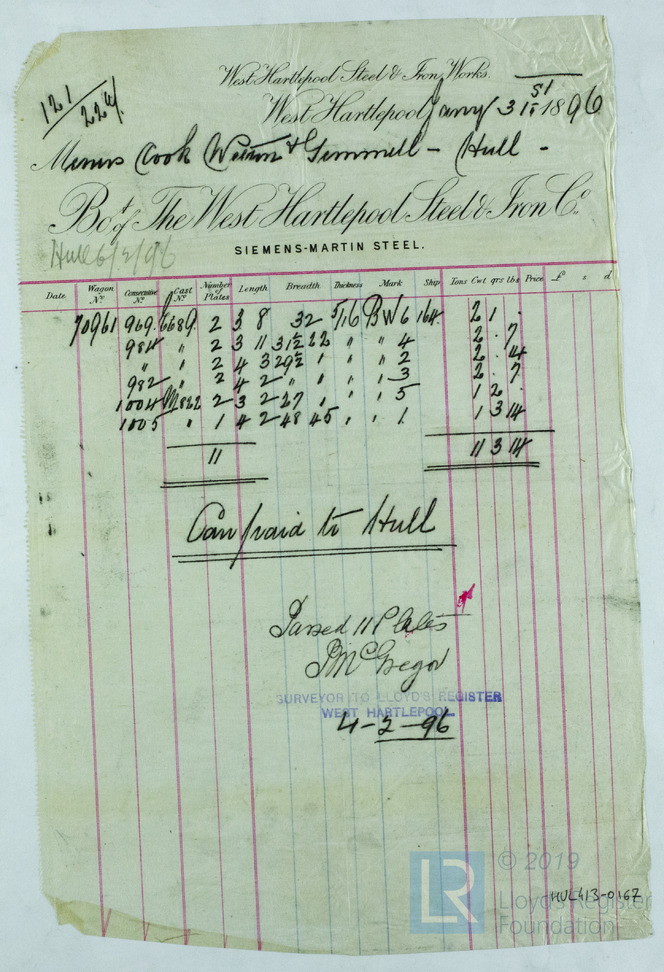 West Hartlepool Steel & Iron Works.
121
224/.
West Hartlepool, Jany 31st 1896
Messrs Cook Welton & Gemmell - Hull -
Bot of The West Hartlepool Steel & Iron Co.,
Hull 6/2/96
SIEMENS-MARTIN STEEL.
Date Wagon No. Consecutive No. Cast No. Number of Plates Length Breadth Thickness Mark Ship Tons Cwt qrs lbs Price £ s d
70961 969. 6689. 2 3 8 32 5/16 BW 6 164. 2 1 .
984 " 2 3 11 31½ 22 " " 4 2 . 7
" " 2 4 3 29½ " " 2 2 . 14
982 " 2 4 2 " " " 3 2 . 7
1004 M822 2 3 2 27 " " 5 1 2 .
1005 " 1 4 2 48 45 " " 1 1 3 14
11 11 3 14
Carr paid to Hull
Passed 11 Plates
McGregor
SURVEYOR TO LLOYD'S REGISTER
WEST HARTLEPOOL
4-2-96
LR
© 2019
Lloyd's Register
Foundation
HUL413-0167